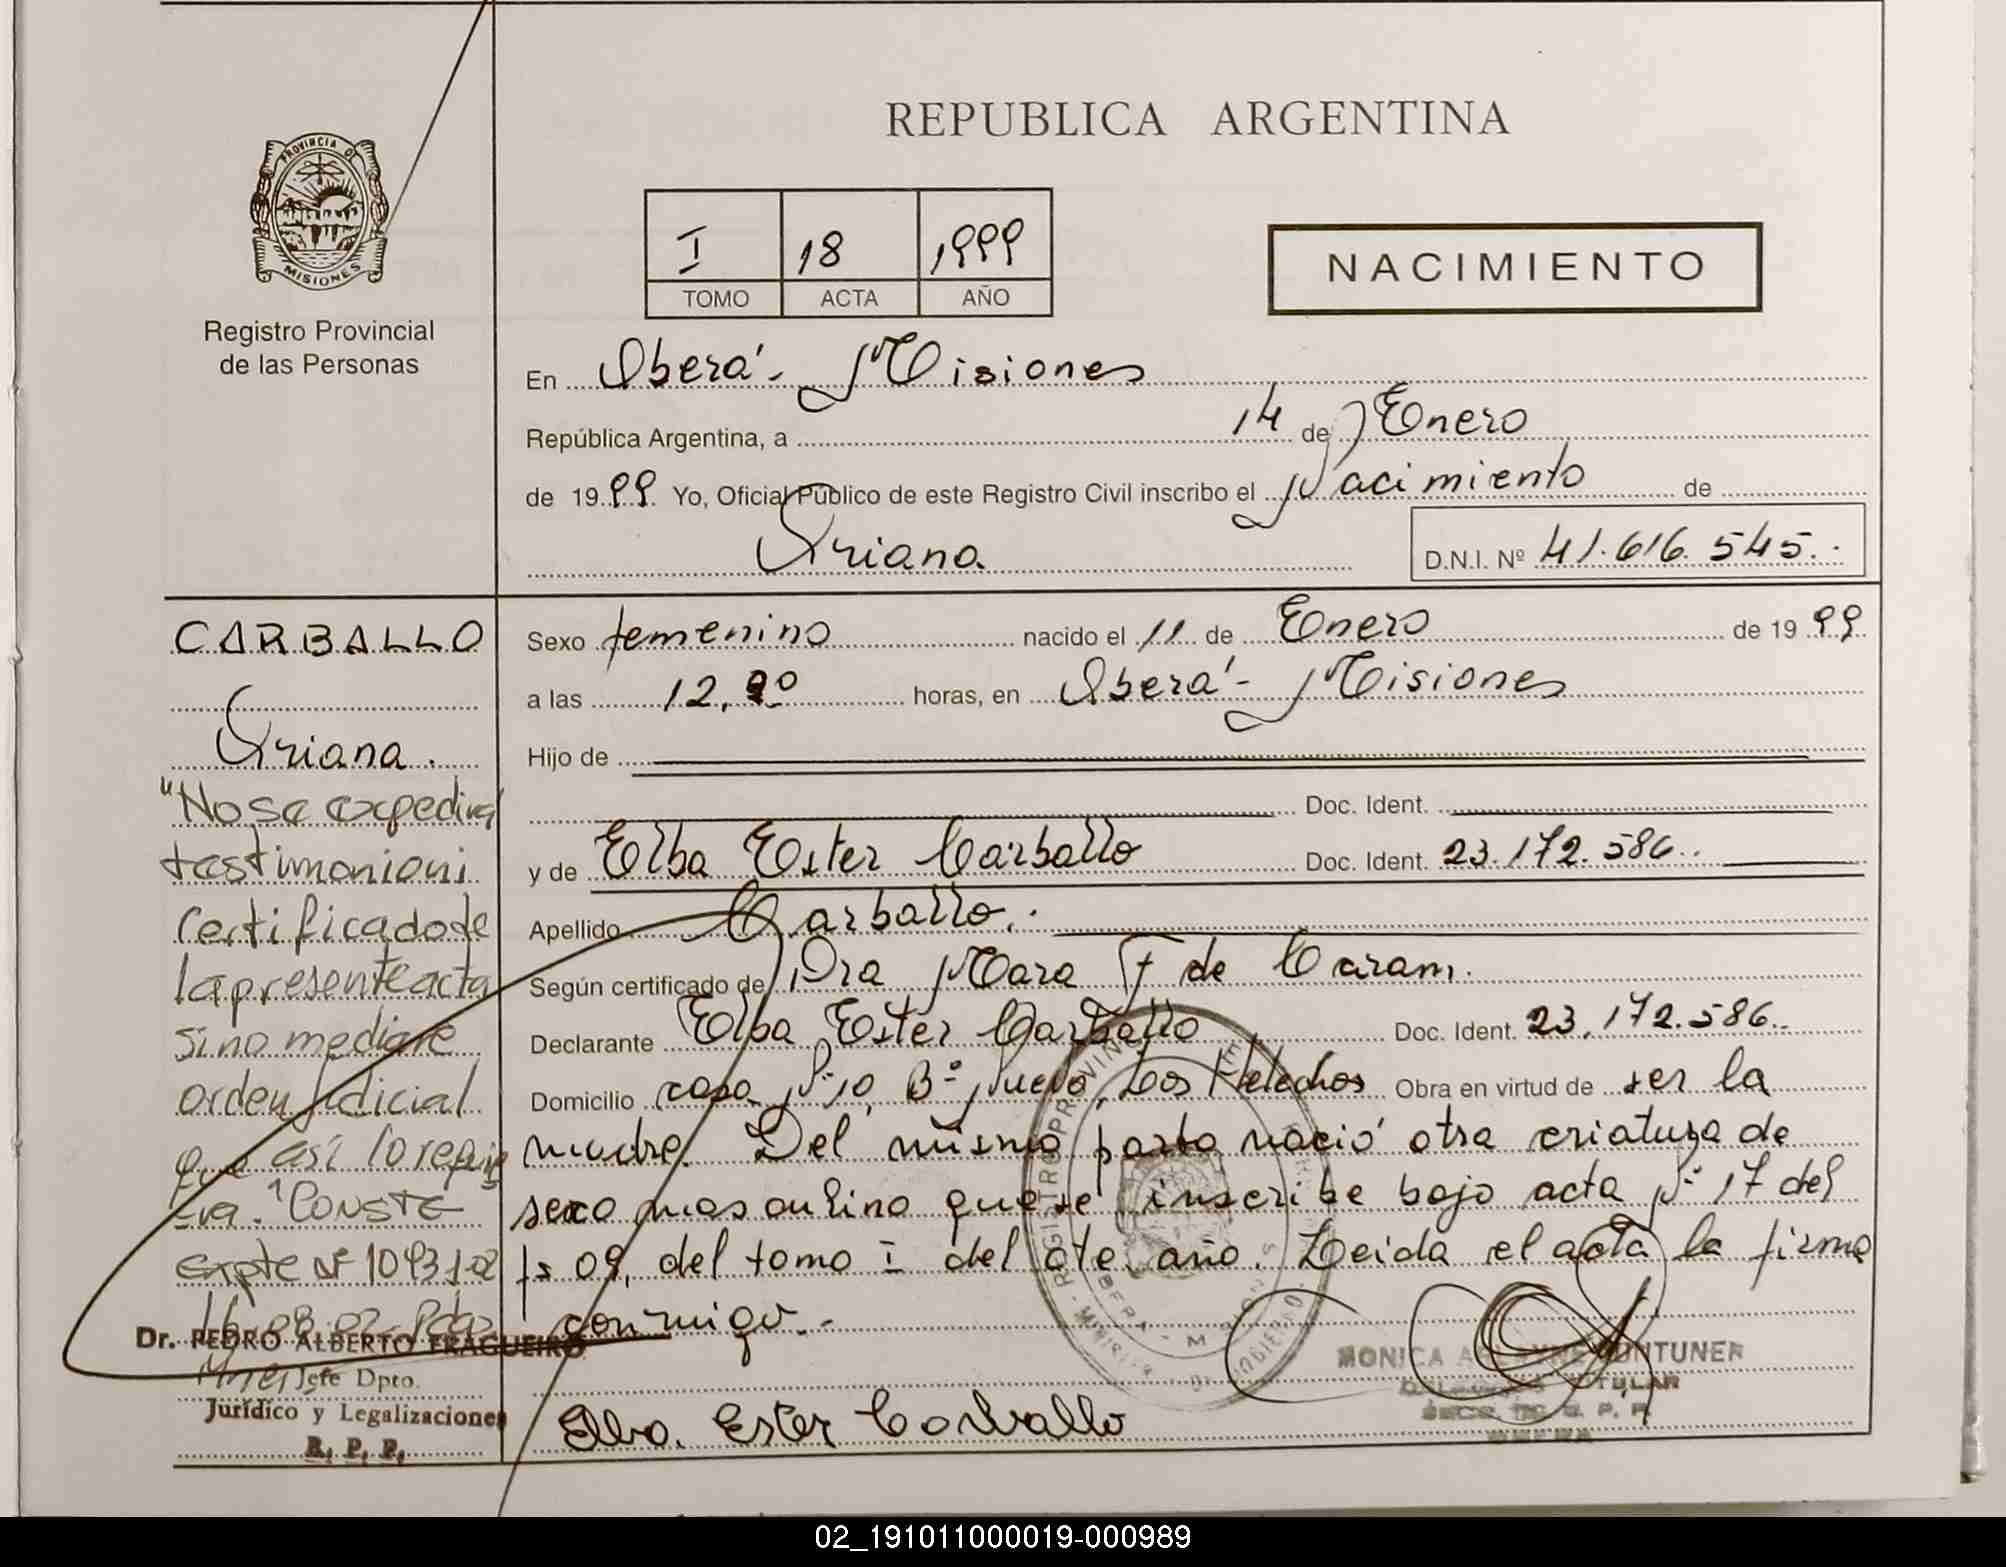 REPUBLICA ARGENTINA
PROVINCIA DE
MISIONES
Registro Provincial
de las Personas
I 18 1999
TOMO ACTA AÑO
NACIMIENTO
En Oberá - Misiones
República Argentina, a 14 de Enero
de 1999 Yo, Oficial Público de este Registro Civil inscribo el Nacimiento de
Oriana
D.N.I. Nº 41.616.545.
CARBALLO
Oriana.
"No se expedirá
testimonio ni
certificado de
la presente acta
sino mediante
orden judicial
que así lo requie
ra." CONSTE
Expte Nº 1093/02
Dr. PEDRO ALBERTO FRAGUEIRO
Jefe Dpto.
Jurídico y Legalizaciones
R. P. P.
Sexo femenino nacido el 11 de Enero de 1999
a las 12, horas, en Oberá - Misiones
Hijo de
Doc. Ident.
y de Elba Ester Carballo Doc. Ident. 23.172.586.
Apellido Carballo.
Según certificado de Dra Mara F de Caram.
Declarante Elba Ester Carballo Doc. Ident. 23.172.586.
Domicilio casa Nº 10, Bº Nuevo, Los Helechos Obra en virtud de ser la
madre. Del mismo parto nació otra criatura de
sexo masculino que se inscribe bajo acta Nº 17 del
fs 09, del tomo I del cte. año. Leida el acta la firma
conmigo.-
Elba Ester Carballo
MONICA
TITULAR
02_191011000019-000989